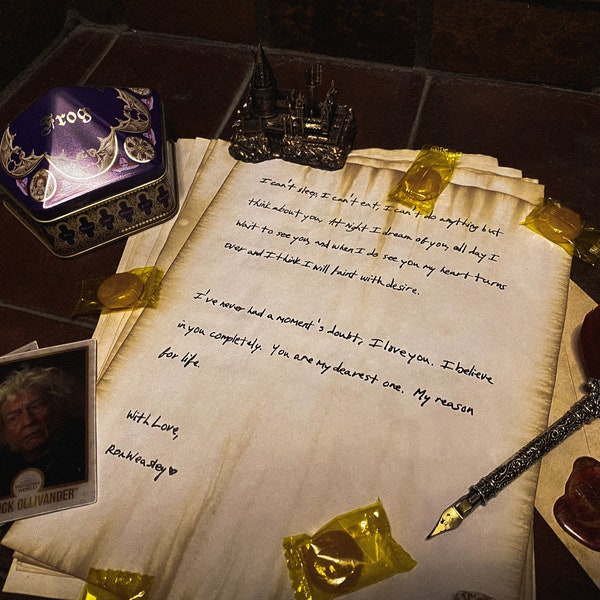 Frog
I can't sleep, I can't eat, I can't do anything but
think about you. At night I dream of you, all day I
wait to see you, and when I do see you my heart turns
over and I think I will faint with desire.
I've never had a moment's doubt, I love you. I believe
in you completely. You are my dearest one. My reason
for life.
With Love,
Ron Weasley ♥
CK OLLIVANDER"